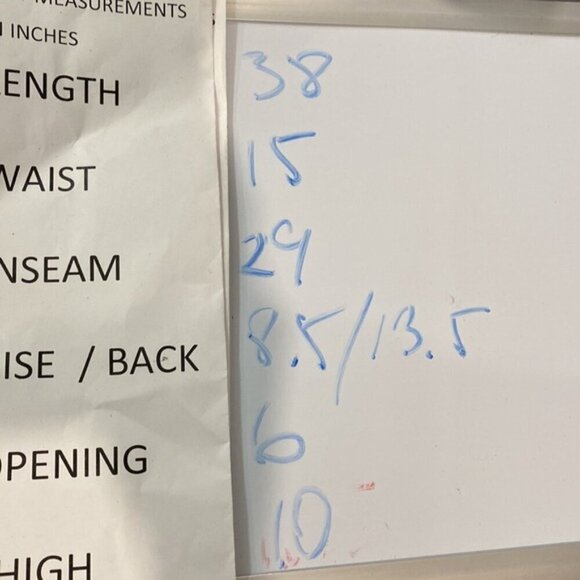 MEASUREMENTS
INCHES
ENGTH 38
WAIST 15
NSEAM 29
ISE / BACK 8.5/13.5
OPENING 6
HIGH 10